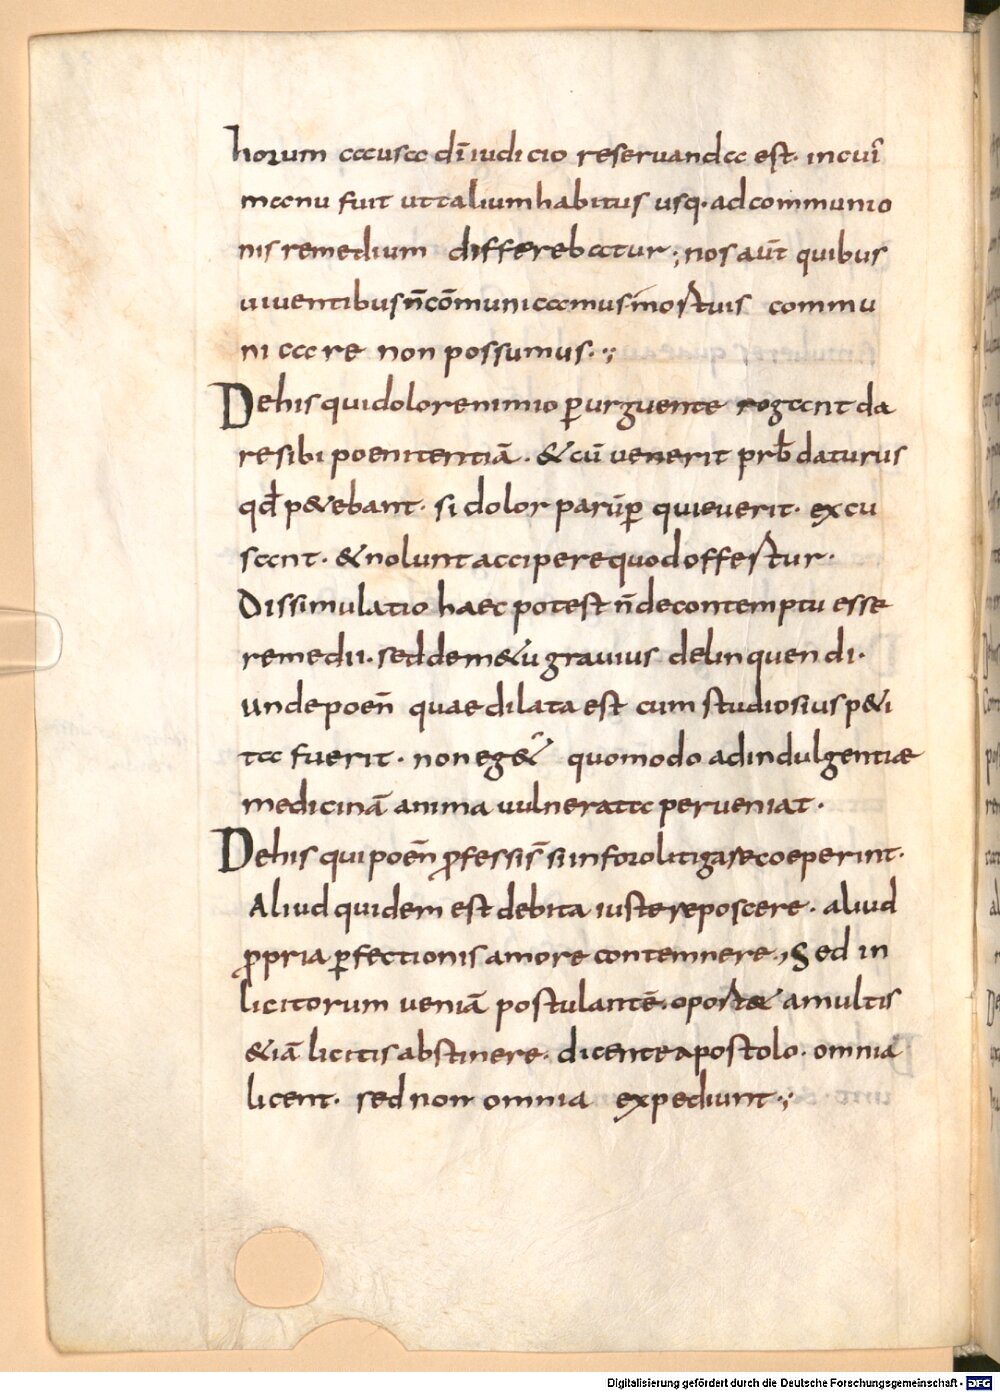 horum causa dī iudicio reservanda est· incuiˢ
manu fuit uttaliumhabitus usq· adcommunio
nis remedium differebatur; nos aūt quibus
uiuentibus n̄ cōmunicamus·mortuis commu
nicare non possumus·;
Dehis quidolorenimio ꝑurguente rogant da
resibi poenitentiā· &cū venerit prb̄ daturus
qd̄ p&ebant· si dolor parūꝑ quieuerit· excu
sant· &nolunt accipere quodoffertur·
Dissimulatio haec potest n̄ decontemptu esse
remedii· seddem&u gravius delinquendi·
undepoeñ quae dilata est cum studiosius p&i
ta fuerit· non eg& quomodo adindulgentiæ
medicinā anima vulnerata perveniat·
Dehis qui poeñ ꝓfessis̄ si inforolitigare coeperint·
Aliud quidem est debita iuste reposcere· aliud
ꝓpria ꝑfectionis amore contemnere, Sed in
licitorum veniā postulantē· oport& amultis
&iā licitis abstinere· dicente apostolo· omnia
licent· sed non omnia expediunt·;
Digitalisierung gefördert durch die Deutsche Forschungsgemeinschaft - DFG